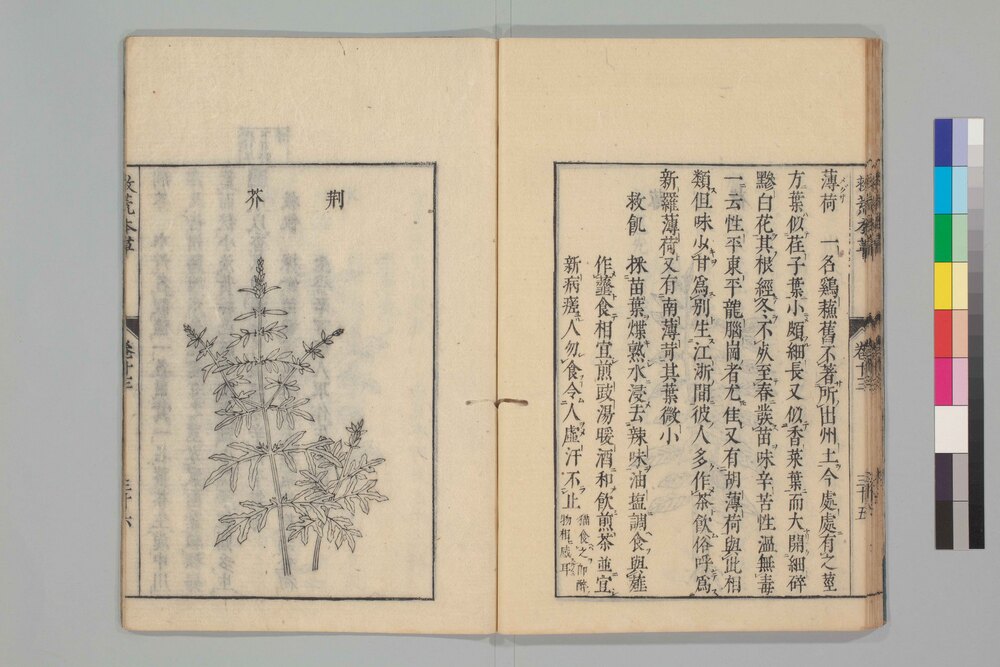 薄荷　一名鷄蘓舊不著所出州土今處處有之莖
方葉似荏子葉小頗細長又似香菜葉而大開細碎
黲白花其根經冬不死至春發苗味辛苦性溫無毒
一云性平東平龍腦崗者尤佳又有胡薄荷與此相
類但味少甘爲別生江浙間彼人多作茶飲俗呼爲
新羅薄荷又有南薄荷其葉微小
救飢　採苗葉煠熟水浸去辣味油塩調食與薤
作虀食相宜煎豉湯暖酒和飲煎茶並宜
新病瘥人勿食令人虛汗不止
猫食之即醉
物相感耳
荊
芥
救荒本草
卷十三
三十六